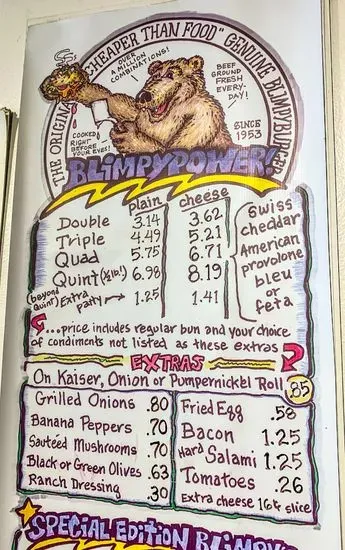 THE ORIGINAL "CHEAPER THAN FOOD" GENUINE BLIMPYBURGER
OVER A MILLION COMBINATIONS!
BEEF GROUND FRESH EVERY-DAY!
COOKED RIGHT BEFORE YOUR EYES!
SINCE 1953
BLIMPYPOWER!
plain cheese
Double 3.14 3.62
Triple 4.49 5.21
Quad 5.75 6.71
Quint (½lb!) 6.98 8.19
(beyond Quint) Extra patty → 1.25 1.41
Swiss
cheddar
American
provolone
bleu
or
feta
...price includes regular bun and your choice
of condiments not listed as these extras
EXTRAS
On Kaiser, Onion or Pumpernickel Roll .85
Grilled Onions .80
Banana Peppers .70
Sautéed Mushrooms .70
Black or Green Olives .63
Ranch Dressing .30
Fried Egg .58
Bacon 1.25
Hard Salami 1.25
Tomatoes .26
Extra cheese 16¢ slice
SPECIAL EDITION BLIMPY